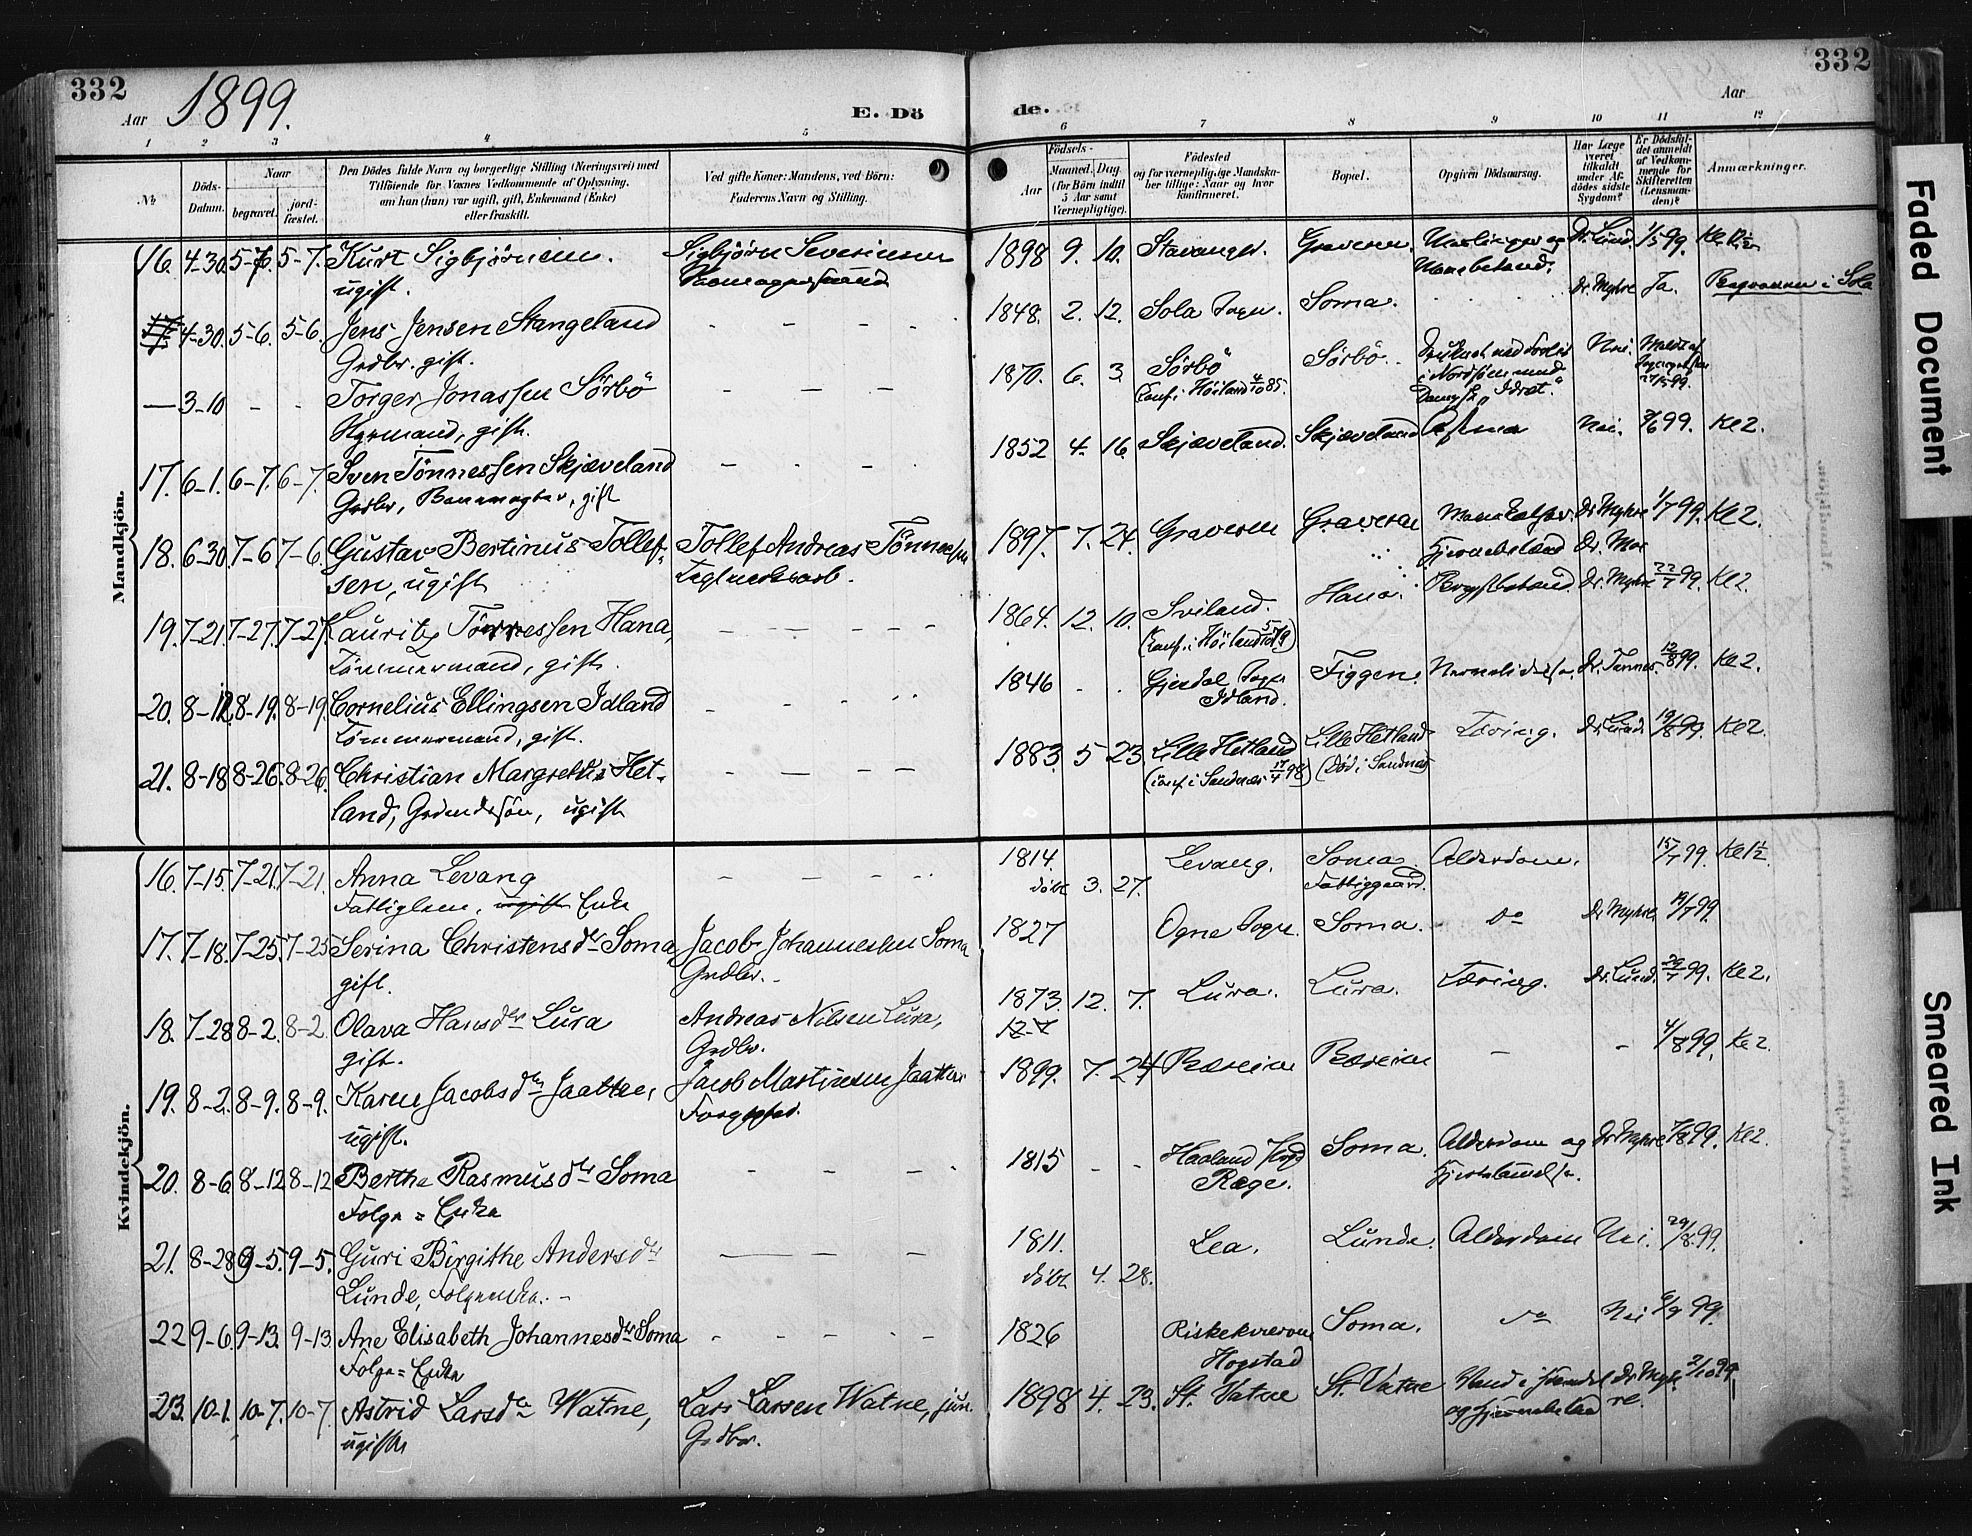 332
332
Aar 1899.
E. Dö
de.
Aar
1 2 3 4 5 6 7 8 9 10 11 12
№
Döds-Datum.
Naar
begravet.
jord-fæstet.
Den Dödes fulde Navn og borgerlige Stilling (Næringsvei) med
Tilföiende for Voxnes Vedkommende af Oplysning,
om han (hun) var ugift, gift, Enkemand (Enke)
eller fraskilt.
Ved gifte Koner: Mandens, ved Börn:
Faderens Navn og Stilling.
Födsels-
Aar
Maaned. Dag.
(for Börn indtil
5 Aar samt
Værnepligtige).
Födested
og for værnepligtige Mandska-
ber tillige: Naar og hvor
konfirmeret.
Bopæl.
Opgiven Dödsaarsag.
Har Læge
været
tilkaldt
under Af-
dödes sidste
Sygdom?
Er Dödsfal-
det anmeldt
af Vedkom-
mende for
Skifteretten
(Lensman-
den)?
Anmærkninger.
Mandkjön.
16. 4-30. 5-7. 5-7. Kurt Sigbjörnsen. Sigbjörn Severinsen 1898 9. 10. Stavanger. Graveren. Dr. Lund. 1/5 99.
ugift.
4-30. 5-6. 5-6. Jens Jensen Stangeland - - - - 1848. 2. 12. Sola Sogn. Soma. Dr. Myhre Ja. Begraven i Sola
Grdbr. gift.
— 3-10 - - Torger Jonassen Sörbö - - - 1870. 6. 3. Sörbö Sörbö. Nei.
gift. Conf. i Höiland 4/10 85. i Nordsöen med Dampsk. „Idræt“.
17. 6-1. 6-7. 6-7. Sven Tönnessen Skjæveland - - - - 1852 4. 16. Skjæveland. Skjæveland Astma Nei. 2/6 99. Ke 2.
Grdbr, gift
18. 6-30. 7-6 7-6. Gustav Bertinus Tollef- Tollef Andreas Tönnessen 1897. 7. 24. Graveren Graveren Dr. Myhre 1/7 99. Ke 2.
sen, ugift Hjernebetænd
19. 7-21. 7-27. 7-27. Lauritz Tönnessen Hana, - - - - 1864. 12. 10. Sviland. Hana. Brystbetænd. Dr. Myhre 22/7 99. Ke 2.
Tömmermand, gift. (Conf. i Höiland 5/10 79)
20. 8-12. 8-19. 8-19. Cornelius Ellingsen Idland - - - - 1846 - - Gjesdal Sogn Figgen. Dr. Tannes. 12/8 99. Ke 2.
Tömmermand, gift. Idland.
21. 8-18 8-26. 8-26. Christian Margrethis Het- - - - - 1883. 5 23. Lille Hetland Lille Hetland Tæring. Dr. Lund. 19/8 99. Ke 2.
land, Grdmdssön, ugift (Conf. i Sandnæs 17/4 98) (Död i Sandnæs)
Kvindekjön.
16. 7-15. 7-21. 7-21. Anna Levang - - - - 1814 Levang. Soma Alderdom. 15/7 99. Ke 1½.
Fattiglem, ugift Enke döbt 3. 27. Fattiggaard.
17. 7-18. 7-25. 7-25 Serina Christensdr Soma, Jacob Johannesen Soma 1827 Ogne Sogn. Soma. do Dr. Myhre. 19/7 99.
gift. Grdbr.
18. 7-28 8-2. 8-2. Olava Hansdr Lura Andreas Nilsen Lura, 1873. 12. 7. Lura. Lura. Tæring. Dr. Lund. 29/7 99. Ke 2.
gift. Grdbr. 12-7
19. 8-2. 8-9. 8-9. Karen Jacobsdr Jaatten, Jacob Martinsen Jaatten 1899. 7. 24 Bæreim Bæreim - - 4/8 99. Ke 2.
ugift. Forpagter.
20. 8-6. 8-12 8-12 Berthe Rasmusdr Soma - - - 1815 - - Haaland Soma. Alderdom og Dr. Myhre 7/8 99. Ke 2.
Folge = Enke Ræge.
21. 8-28 9-5. 9-5. Guri Birgithe Andersdr - - - 1811. Lea. Lunde. Alderdom Nei. 29/8 99.
Lunde, Folgeenke. döbt 4. 28.
22 9-6. 9-13. 9-13. Ane Elisabeth Johannesdr Soma - - - - 1826 Riskekværven Soma. do Nei 6/9 99.
Folge = Enke Hogstad
23. 10-1. 10-7. 10-7. Astrid Larsdr Watne, Lars Larsen Watne, jun. 1898 4. 23. St. Vatne St. Vatne Vand i Hovedet Dr. Myh- 2/10 99.
ugift Grdbr. og Hjernebetænd re.
Faded Document
Smeared Ink